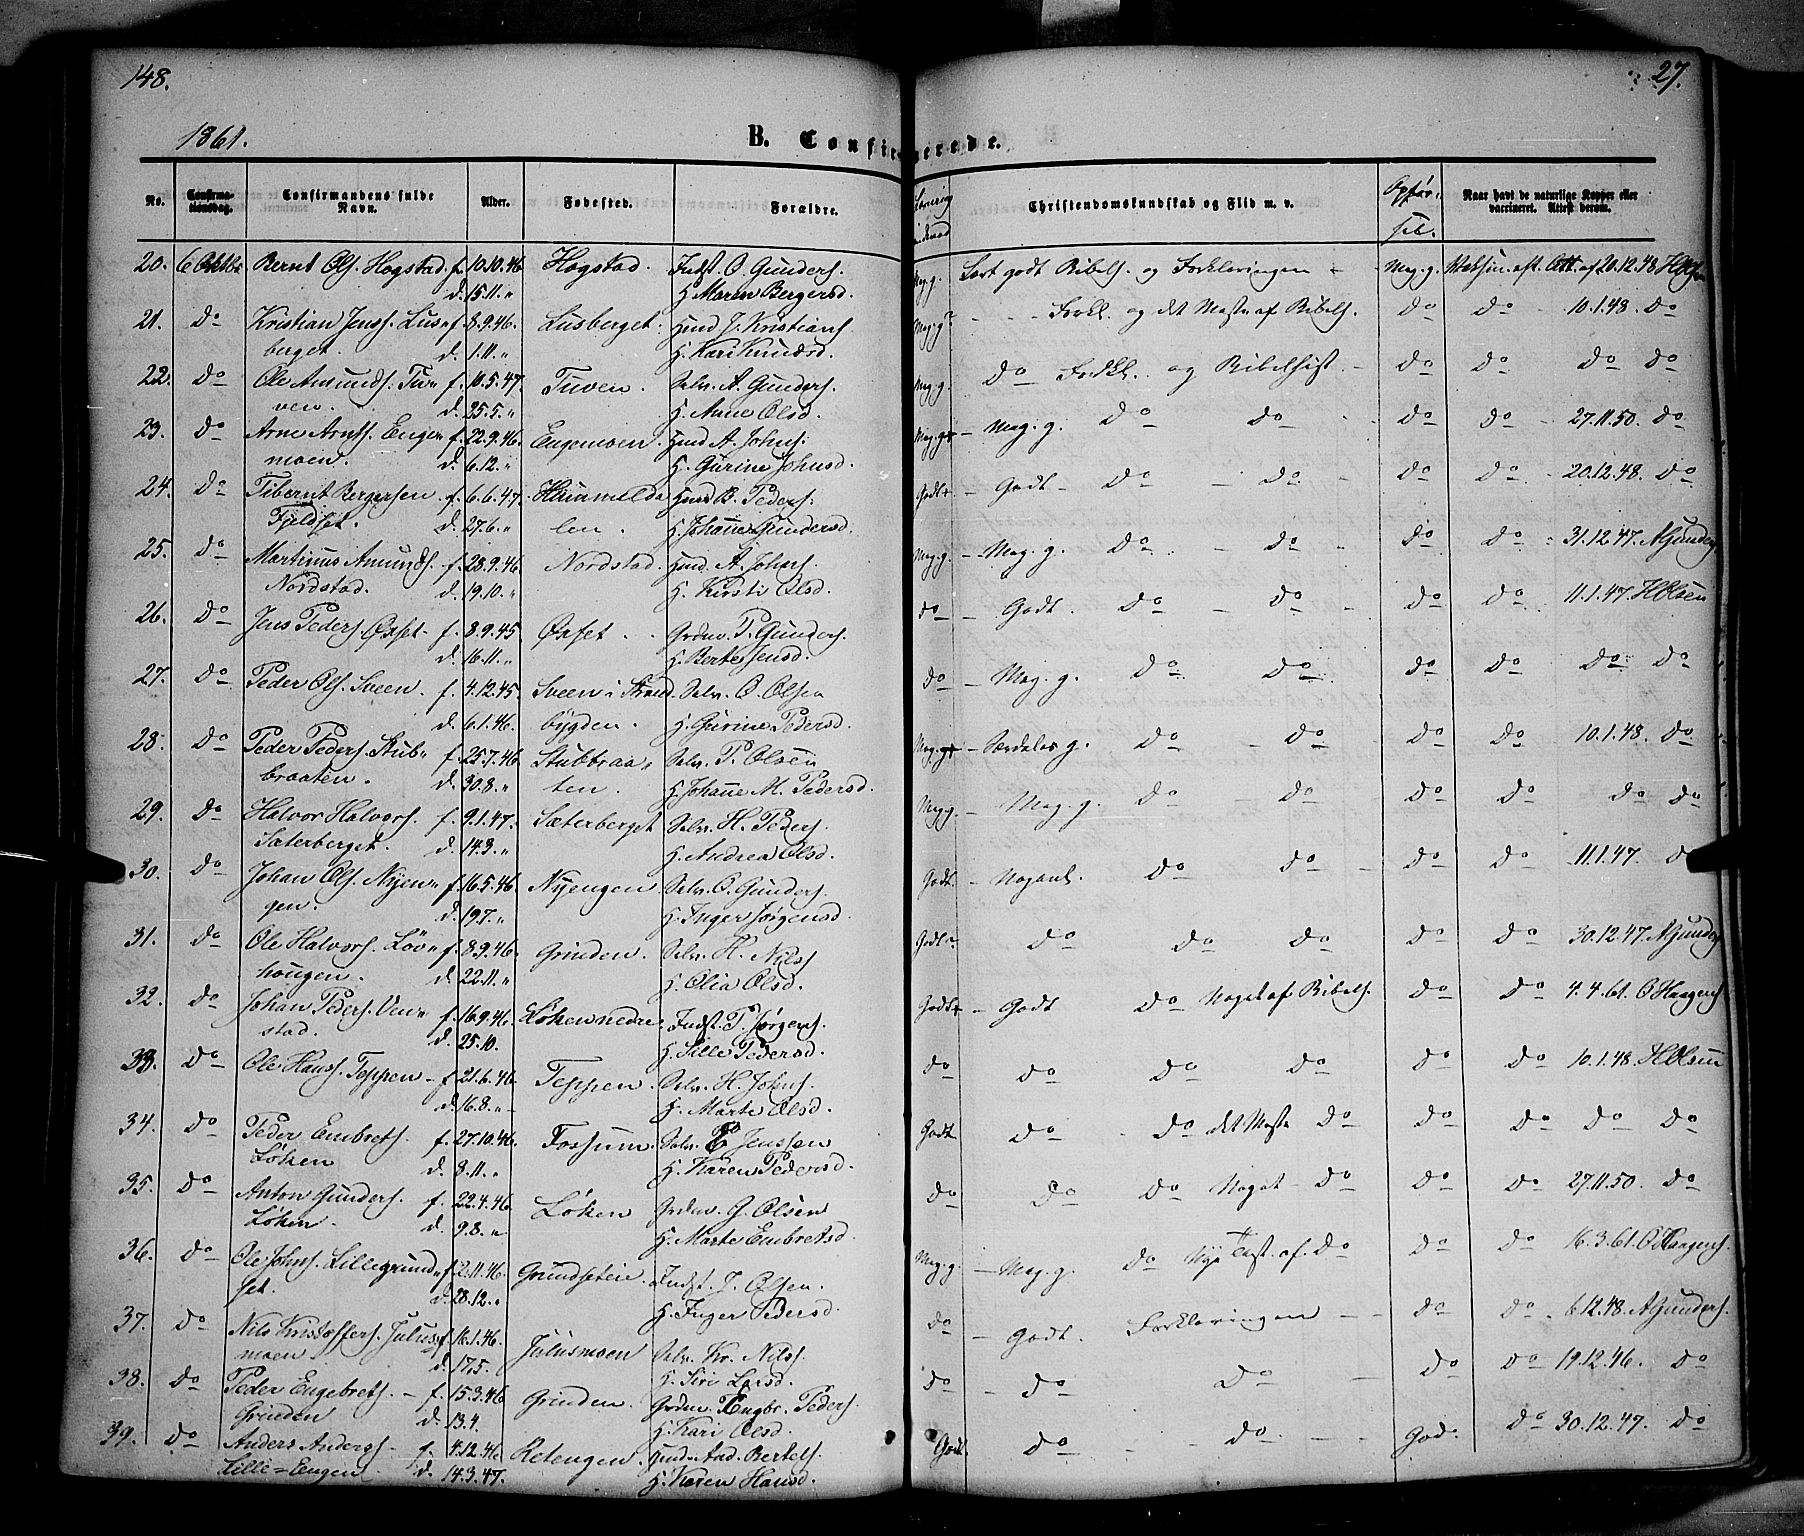 148.
27.
1861.
B. Confirmerede.
No.
Confirma-
tionsdag.
Confirmandens fulde
Navn.
Alder.
Fødested.
Forældre.
Christendomskundskab og Flid m. v.
Opfør-
sel.
Naar havt de naturlige Kopper eller
vaccineret. Attest derom.
20. 6 Oktbr Bernt Ols. Hogstad. f. 10.10.46 Hogstad. Indst. O. Gunders. Meg. g. godt Bibelh. og Forklaringen - Meg. g. Att. af 20.12.48
d. 15.11. „ H. Maren Bergersd.
21. do Kristian Jenss. Lus= f. 8.9.46. Lusberget. Huusd J. Kristians. Meg. g. Forkl. og det Meste af Bibelh. do do 10.1.48. do
berget. d. 1.11. „ H. Kari Knudsd.
22. do Ole Amunds. Tu= f. 10.5.47 Tuven. Selv. A. Gunders. Meg. g. do Forkl. og Bibelhist. - do do do do
ven. d. 25.5. „ H. Anne Olsd.
23. do Arne Arnts. Enge= f. 22.9.46. Engemoen. Huusd A. Johns. Meg. g. - Meg. g. do do do do 27.11.50. do
moen. d. 6.12. „ H. Gurine Johnsd.
24. do Tibernt Bergersen f. 6.6.47. Himmelda Huusd B. Peders. Godt - Godt - do do do do 20.12.48. do
Fjeldset. d. 27.6. „ len. H. Johanne Gundersd.
25. do Martinus Amunds. f. 28.9.46 Nordstad. Huusd. A. Johns. Meg. g. - Meg. g. do do do do 31.12.47. A Gunders
Nordstad. d. 19.10. „ H. Kirsti Olsd.
26. do Jens Peders. Øxset - f. 8.9.45 Øxset. Grdm. P. Gunders. do Godt. do do do do 11.1.47 H Olsen
d. 16.11. „ H. Berte Jensd.
27. do Peder Ols. Sveen. f. 4.12.45. Sveen i Strand Selv. O. Olsen do - Meg. g. do do do do do do
d. 6.1.46. bygden. H. Gurine Pedersd.
28. do Peder Peders. Stub= f. 25.7.46 Stubbraa= Selv. P. Olsen Meg. g. - Særdeles g. do do do do 10.1.48. do
braaten. d. 30.8. „ ten. H. Johanne M. Pedersd.
29. do Halvor Halvors. f. 9.1.47. Sæterberget Selv. H. Peders. Meg g. - Meg. g. do do do do do do
Sæterberget. d. 14.3. „ H. Andrea Olsd.
30. do Johan Ols. Nyen= f. 16.5.46 Nyengen Selv. O. Gunders. Godt. - do do do do 11.1.47. do
gen. d. 19.7. „ H. Inger Jørgensd.
31. do Ole Halvors. Løv= f. 8.9.46 Grinden. Selv. H. Nilss Godt do do do do do 30.12.47. A Gunders
hougen. d. 22.11. „ H. Olia Olsd.
32. do Johan Peders. Ven= f. 16.9.46. Løken nedre Indst. P. Jørgens. Godt - Godt do Noget af Bibelh. do do 4.4.61. O Haagens.
stad. d. 25.10. H. Sille Pedersd.
33. do Ole Hanss. Teppen - f. 21.6.46 Teppen. Selv. H. Johns. do do do do do do 10.1.48. H Olsen
d. 16.8. „ H. Marte Olsd.
34. do Peder Embrets. f. 27.10.46. Fossum. Selv. E. Jenssen Godt do - do det Meste do do do do do
Løken d. 8.11. „ H. Karen Pedersd.
35. do Anton Gunders. f. 22.4.46 Løken Grdm. G. Olsen do do do Noget - do do do 27.11.50. do
Løken. d. 9.8. „ H. Marte Embretsd.
36. do Ole Johns. Lillegrund= f. 2.11.46. Grundseteie. Indst. J. Olsen. Meg. g. - Meg. g. do Nye Test. af do do do 16.3.61. O Haagens.
set. d. 28.12. „ H. Inger Pedersd.
37. do Nils Kristoffers. Julus= f. 16.1.46. Julusmoen Selv. Kr. Nilss. do - Godt. Forklaringen - - do do 6.12.48. A Gunders.
moen. d. 17.5. H. Siri Larsd.
38. do Peder Engebrets. - f. 15.3.46 Grinden. Grdm. Engbr. Peders. do - do do do do 19.12.46. do
Grinden d. 13.4. H. Kari Olsd.
39. do Anders Anderss. - f. 4.12.46 Retengen. Bertels. Godt. do do God. do 30.12.47. do
Lille=Engen d. 14.3.47. H. Karen Hansd.